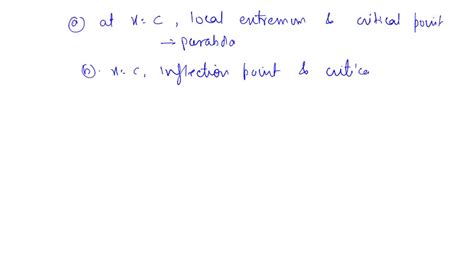 (a) at x = c , local extremum & critical point
→ parabola
(b). x = c, inflection point & critica